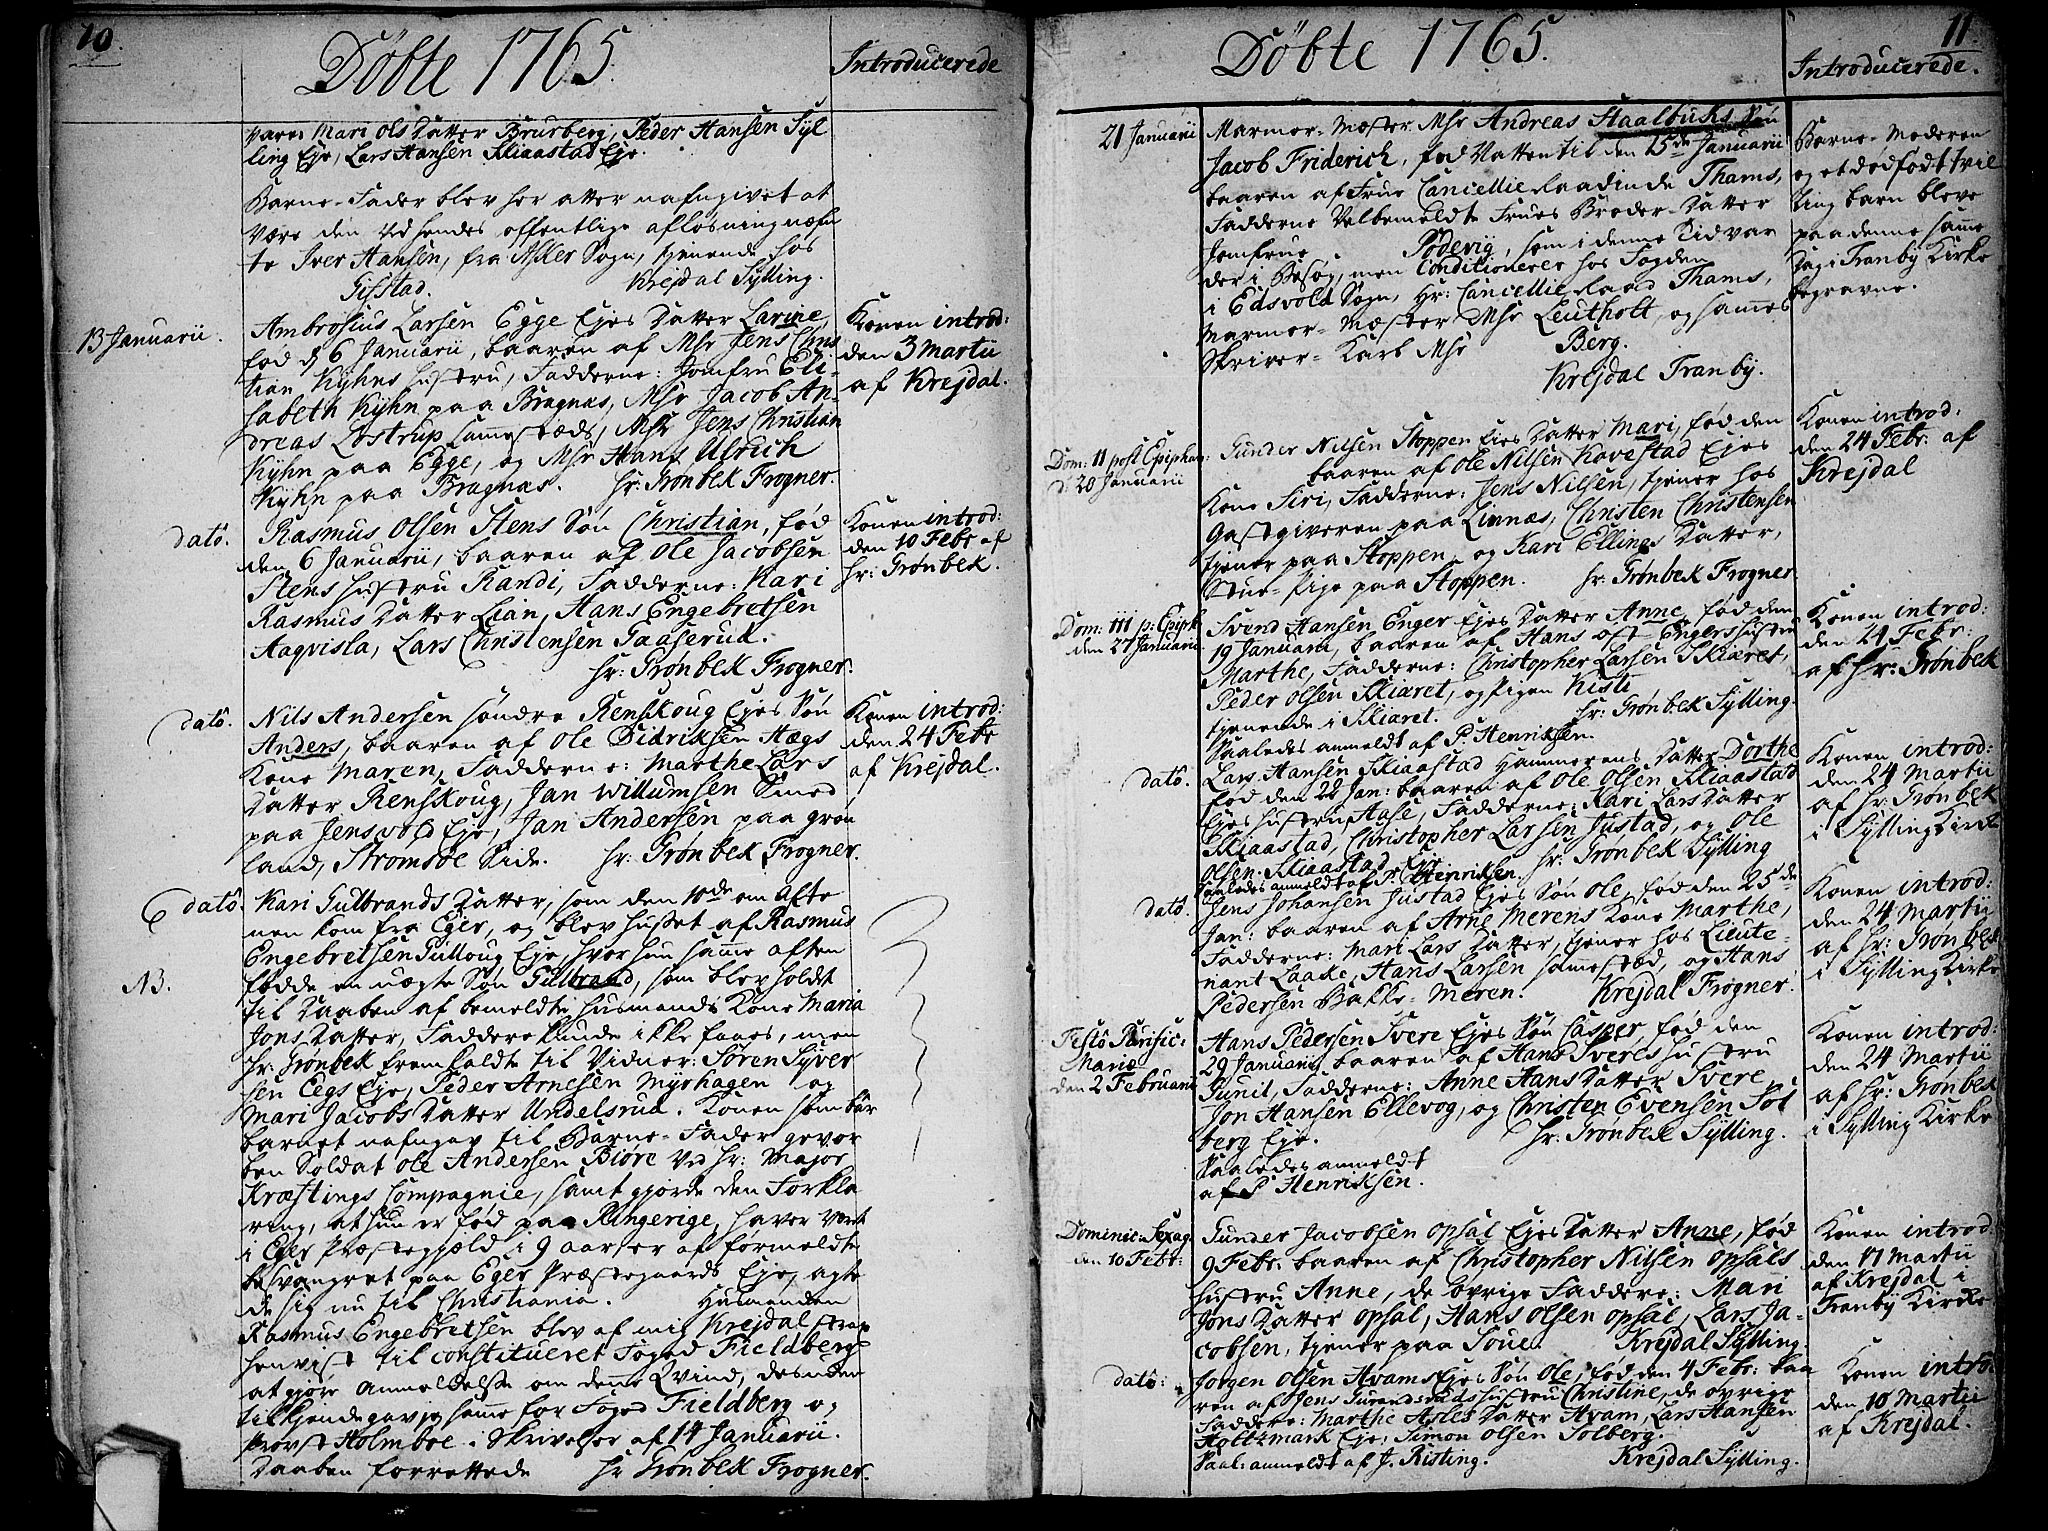 10.
Döbte 1765.
Introducerede
vare: Mari Ols Datter Brurberg, Peder Hansen Syl
ling Eje, Lars Hansen Skiaastad Eje.
Barne-Fader blev her atter nafngivet at
være den ved hendes offentlige afløsning næfn
te Iver Hansen, fra Asker Sogn, tjenende hos
Gifstad. Krejdal Sylling.
13 Januarii.
Ambrosius Larsen Egge Ejes Datter Larine,
fød d 6 Januarii, baaren af Msr Jens Chris
tian Kyhns Hustru, Fadderne: Jomfru Eli-
sabeth Kyhn paa Bragnæs, Msr Jacob An-
dreas Lostrup sammestæds, Msr Jens Christian
Kyhn paa Egge, og Msr Hans Ulrich
Kyhn paa Bragnæs. Hr: Grönbek Frogner.
Konen introd:
den 3 Martii
af Krejdal.
dato.
Rasmus Olsen Stens Søn Christian, fød
den 6 Januarii, baaren af Ole Jacobsen
Stens Hustru Randi, Fadderne: Kari
Rasmus Datter Lian, Hans Engebretsen
Aaqvisla, Lars Christensen Gaaserud.
Hr: Grönbek Frogner.
Konen introd:
den 10 Febr af
Hr: Grönbek.
dato.
Nils Andersen söndre Renskoug Ejes Søn
Anders, baaren af Ole Didriksen Hægs
Kone Maren, Fadderne: Marthe Lars
Datter Renskoug, Jan Willumsen Smed
paa Jensvold Eje, Jan Andersen paa Grön
land, Strömsöe Side. Hr: Grönbek Frogner.
Konen introd:
den 24 Febr
af Krejdal.
dato.
Kari Gulbrands Datter, som den 10de om Afte
nen kom fra Eger, og blev huset af Rasmus
Engebretsen Gulloug Eje, hvor hun samme aften
NB.
fødde en uægte Søn Gulbrand, som blev holdt
til Daaben af bemeldte Huusmands Kone Maria
Jons Datter, Faddere kunde ikke faaes, men
Hr: Grönbek fremkaldte til Vidner: Sören Syver
sen Eegs Eje, Peder Arnesen Myrhagen og
Mari Jacobs Datter Undelsrud. Konen som bar
barnet nafngav til Barne-Fader gevor
ben Soldat Ole Andersen Biöre ved Hr: Major
Kræftings Compagnie, samt gjorde den Forkla
ring, at hun er fød paa Ringerige, haver vært
i Eger Præstegjæld i 9 aar er af formeldte
besvangret paa Eger Præstegaards Eje, agte
de sig nu til Christiania. Husmanden
Rasmus Engebretsen blev af mig Krejdal strax
henvist til constitueret Foged Fieldberg
at gjöre Anmeldelse om denne Qvind, desuden
tilkjendegav jeg samme for Foged Fieldberg og
Provst Holmboe i Skrivelser af 14 Januarii.
Daaben forrettede Hr Grönbek Frogner.
11
Döbte 1765.
Introducerede.
21 Januarii
Marmor-Mæster Msr Andreas Staalbuks Søn
Jacob Friderich, fød Natten til den 15de Januarii
baaren af Frue Cancellie Raadinde Thams,
Fadderne Velbemeldte Frues Broder-Datter
Jomfrue Podevig, som i denne Tid var
der i Besøg, men Conditionerer hos Fogden
i Edsvold Sogn, Hr: Cancellie Raad Thams,
Marmor-Mæster Msr Leutholt, og sammes
Skriver-Karl Msr Berg.
Krejdal Tranby.
Barne-Moderen
og et dødfødt tvil
ling barn bleve
paa denne samme
Dag i Tranby Kirke
begravne.
Dom: II post Epiphan:
d. 20 Januarii
Gunder Nilsen Stoppen Ejes Datter Mari, fød den
baaren af Ole Nilsen Kovestad Ejes
Kone Siri, Fadderne: Jens Nilsen, tjener hos
Gæstgiveren paa Linnæs, Christen Christensen
tjener paa Stoppen, og Kari Ellings Datter,
Stue-Pige paa Stoppen. Hr: Grönbek Frogner.
Konen introd:
den 24 Febr: af
Krejdal
Dom: III p: Epiph
den 27 Januarii
Svend Hansen Enger Ejes Datter Anne, fød den
19 Januarii, baaren af Hans Ost-Engers Hustru
Marthe, Fadderne: Christopher Larsen Skiæret,
Peder Olsen Skiæret, og Pigen Kisti
tjenende i Skiæret. Hr: Grönbek Sylling.
Saaledes anmeldt af P Henriksen.
Konen introd:
den 24 Febr:
af Hr: Grönbek
dato.
Lars Hansen Skiaastad Hammerens Datter Dorthe
fød den 22 Jan: baaren af Ole Olsen Skiaastad
Ejes Hustru Aase, Fadderne: Kari Lars Datter
Skiaastad, Christopher Larsen Justad, og Ole
Olsen Skiaastad Eje. Hr: Grönbek Sylling
Saaledes anmeldt af P Henriksen.
Konen introd:
den 24 Martii
af Hr: Grönbek
i Sylling Kirke
dato.
Jens Johansen Justad Ejes Søn Ole, fød den 25de
Jan: baaren af Arne Merens Kone Marthe,
Fadderne: Mari Lars Datter, tjener hos Lieute-
nant Laake, Hans Larsen sammested, og Hans
Pedersen Bakke-Meren. Krejdal Frogner.
Konen introd:
den 24 Martii
af Hr: Grönbek
i Sylling Kirke
Festo Purific:
Mariæ
den 2 Februarii
Hans Pedersen Svere Ejes Søn Casper, fød den
29 Januarii baaren af Hans Sveres Hustru
Gunil, Fadderne: Anne Hans Datter Svere,
Jon Hansen Ellevog, og Christen Evensen Sol
berg Eje. Hr: Grönbek Sylling.
Saaledes anmeldt
af P Henriksen.
Konen introd:
den 24 Martii
af Hr: Grönbek
i Sylling Kirke
Dominic: Sexag
den 10 Febr:
Gunder Jacobsen Opsal Ejes Datter Anne, fød
9 Febr: baaren af Christopher Nilsen Opsals
Hustru Anne, de övrige Faddere: Mari
Jons Datter Opsal, Hans Olsen Opsal, Lars Ja-
cobsen, tjener paa Loue. Krejdal Sylling.
Konen introd:
den 17 Martii
af Krejdal i
Tranby Kirke
dato:
Jörgen Olsen Hvams Eje: Søn Ole, fød den 4 Febr: baa
ren af Jens Gurandsruds Hustru Christine, de övrige
Faddere: Marthe Asles Datter Hvam, Lars Hansen
Holtzmark Eje, Simon Olsen Solberg.
Saal: anmeldt af J. Risting. Krejdal Sylling.
Konen introd:
den 10 Martii
af Krejdal.